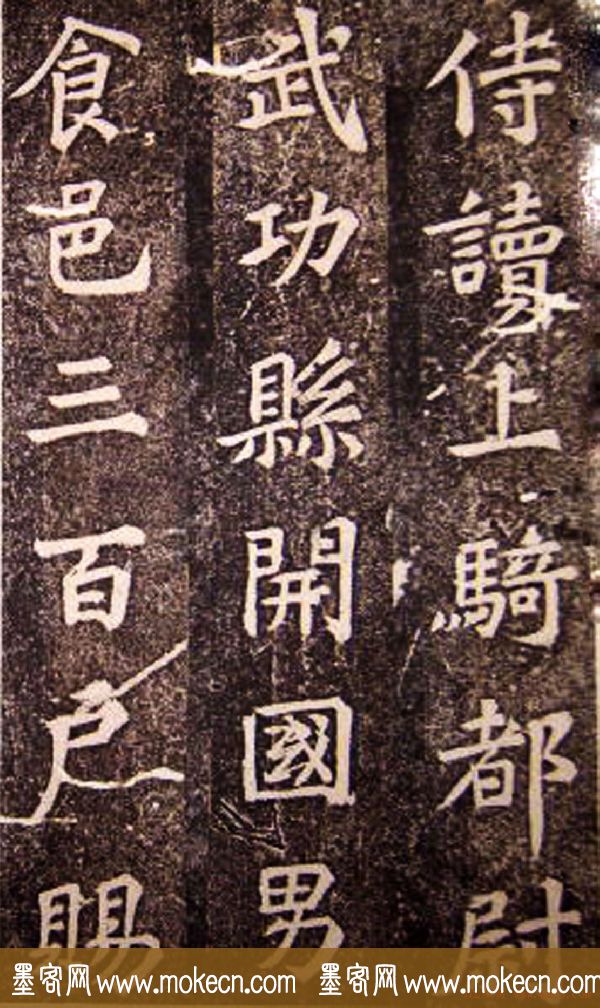 侍讀上騎都尉
武功縣開國男
食邑三百戶賜
墨客网 www.mokecn.com 墨客网 www.mokecn.com